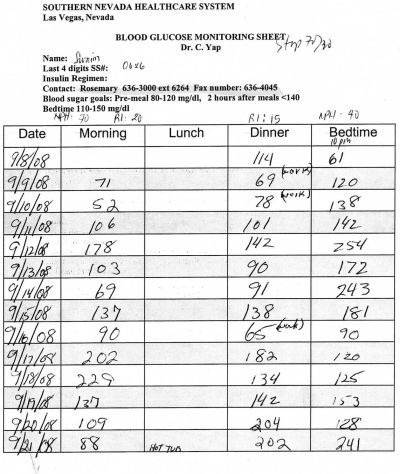 SOUTHERN NEVADA HEALTHCARE SYSTEM
Las Vegas, Nevada
BLOOD GLUCOSE MONITORING SHEET
Stop 70/30
Dr. C. Yap
Name:
Last 4 digits SS#: 0026
Insulin Regimen:
Contact: Rosemary 636-3000 ext 6264 Fax number: 636-4045
Blood sugar goals: Pre-meal 80-120 mg/dl, 2 hours after meals <140
Bedtime 110-150 mg/dl
NPH: 70 RI: 20 RI: 15 NPH: 40
Date Morning Lunch Dinner Bedtime
10 pm
9/8/08 114 61
9/9/08 71 69 (work) 120
9/10/08 52 78 (work) 138
9/11/08 106 101 142
9/12/08 178 142 254
9/13/08 103 90 172
9/14/08 69 91 243
9/15/08 137 138 181
9/16/08 90 65 90
9/17/08 202 182 120
9/18/08 229 134 125
9/19/08 137 142 153
9/20/08 109 204 128
9/21/08 88 HOT TUB 202 241